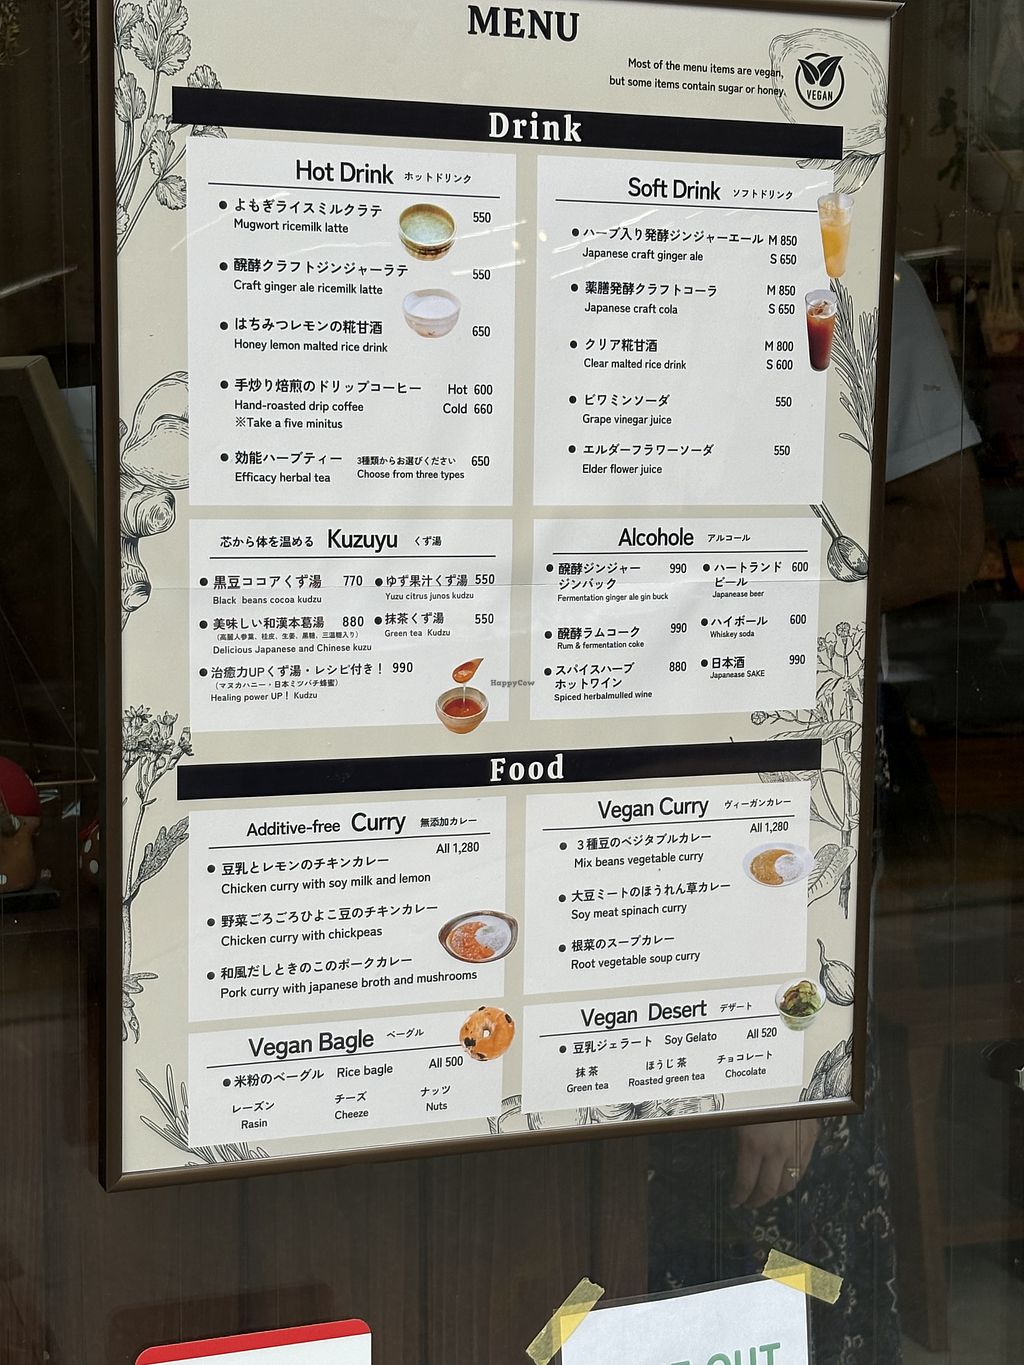 MENU
Most of the menu items are vegan,
but some items contain sugar or honey.
VEGAN
Drink
Hot Drink ホットドリンク
よもぎライスミルクラテ 550
Mugwort ricemilk latte
醗酵クラフトジンジャーラテ 550
Craft ginger ale ricemilk latte
はちみつレモンの糀甘酒 650
Honey lemon malted rice drink
手炒り焙煎のドリップコーヒー Hot 600
Hand-roasted drip coffee Cold 660
※Take a five minitus
効能ハーブティー 3種類からお選びください 650
Efficacy herbal tea Choose from three types
Soft Drink ソフトドリンク
ハーブ入り発酵ジンジャーエール M 850
Japanese craft ginger ale S 650
薬膳発酵クラフトコーラ M 850
Japanese craft cola S 650
クリア糀甘酒 M 800
Clear malted rice drink S 600
ビワミンソーダ 550
Grape vinegar juice
エルダーフラワーソーダ 550
Elder flower juice
芯から体を温める Kuzuyu くず湯
黒豆ココアくず湯 770
Black beans cocoa kudzu
ゆず果汁くず湯 550
Yuzu citrus junos kudzu
美味しい和漢本葛湯 880
(高麗人参葉、桂皮、生姜、黒糖、三温糖入り)
Delicious Japanese and Chinese kuzu
抹茶くず湯 550
Green tea Kudzu
治癒力UPくず湯・レシピ付き! 990
(マヌカハニー・日本ミツバチ蜂蜜)
Healing power UP! Kudzu
HappyCow
Alcohole アルコール
醗酵ジンジャー 990
ジンバック
Fermentation ginger ale gin buck
ハートランド 600
ビール
Japanease beer
醗酵ラムコーク 990
Rum & fermentation coke
ハイボール 600
Whiskey soda
スパイスハーブ 880
ホットワイン
Spiced herbalmulled wine
日本酒 990
Japanease SAKE
Food
Additive-free Curry 無添加カレー
All 1,280
豆乳とレモンのチキンカレー
Chicken curry with soy milk and lemon
野菜ごろごろひよこ豆のチキンカレー
Chicken curry with chickpeas
和風だしときのこのポークカレー
Pork curry with japanese broth and mushrooms
Vegan Curry ヴィーガンカレー
All 1,280
3種豆のベジタブルカレー
Mix beans vegetable curry
大豆ミートのほうれん草カレー
Soy meat spinach curry
根菜のスープカレー
Root vegetable soup curry
Vegan Bagle ベーグル
All 500
米粉のベーグル Rice bagle
レーズン チーズ ナッツ
Rasin Cheeze Nuts
Vegan Desert デザート
All 520
豆乳ジェラート Soy Gelato
抹茶 ほうじ茶 チョコレート
Green tea Roasted green tea Chocolate
OUT